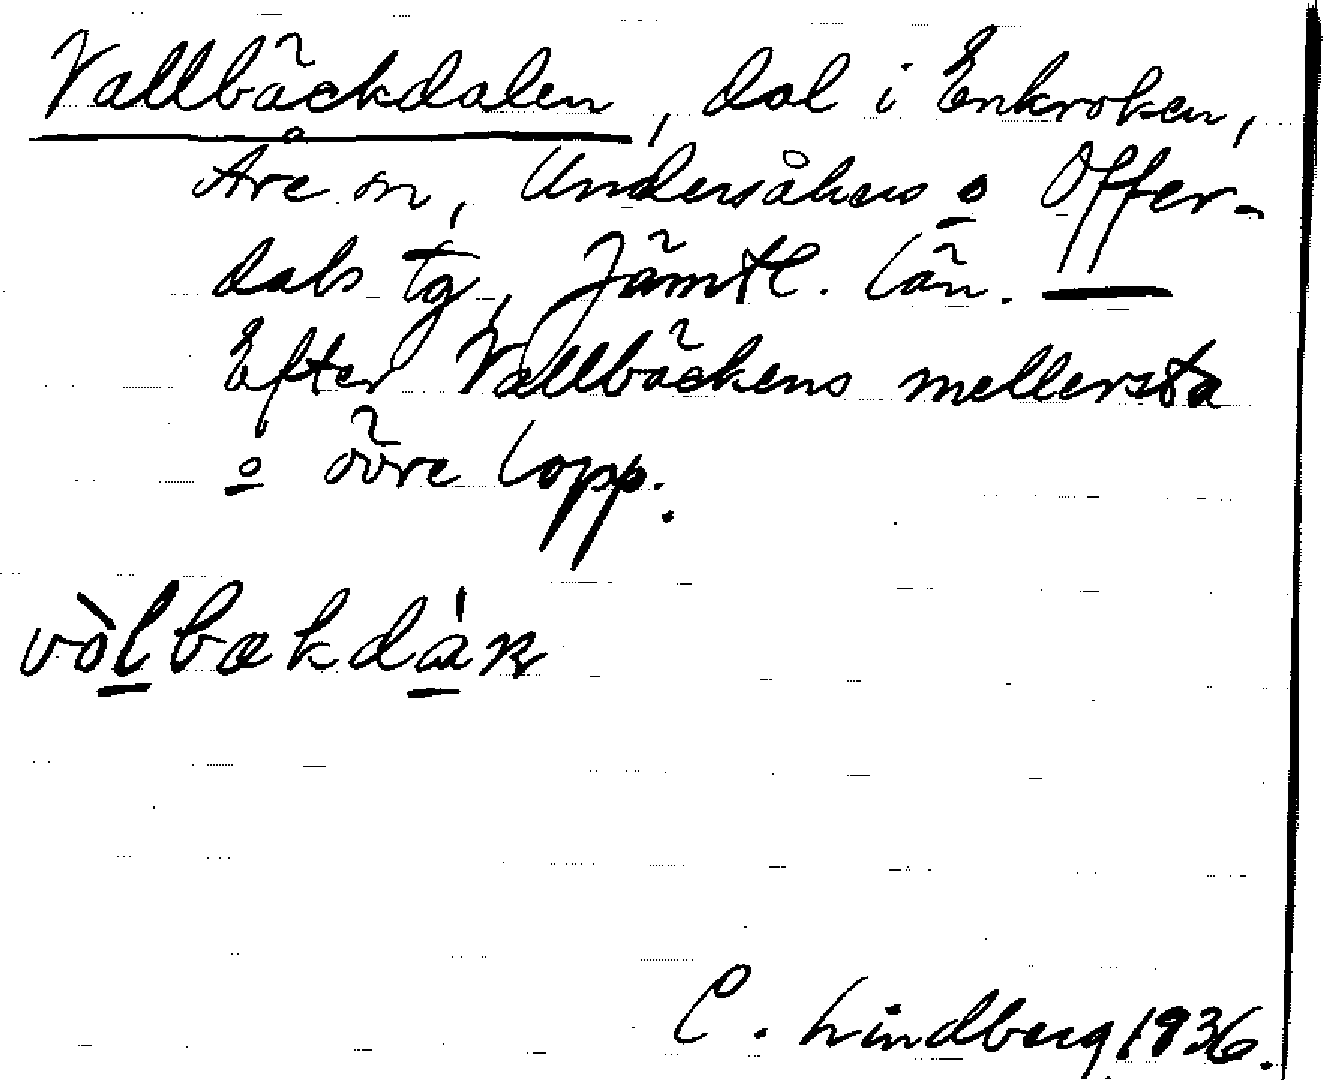 Vallbäckdalen, dal i Enkroken,
Åre sn, Undersåkers o Offer-
dals tg, Jämtl. län. —
Efter Vallbäckens mellersta
o övre lopp.
vòlbækdàn
C. Lindberg 1936.